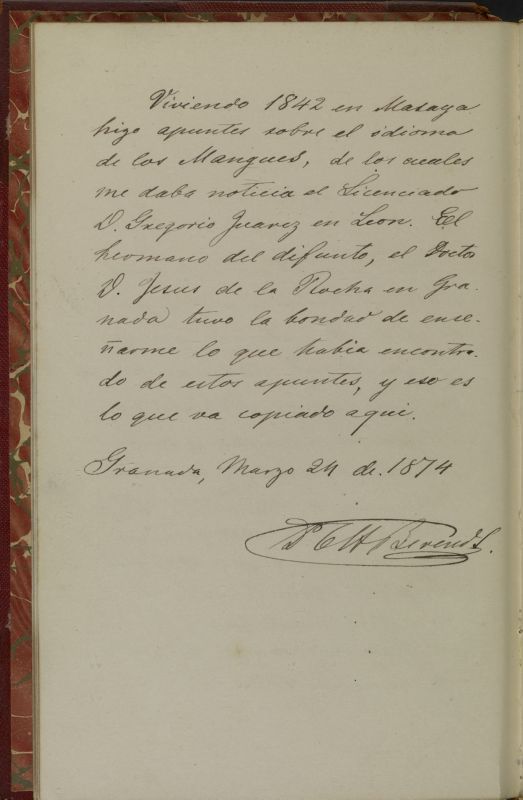 Viviendo 1842 en Masaya
hizo apuntes sobre el idioma
de los Mangues, de los cuales
me daba noticia el Licenciado
D. Gregorio Juarez en Leon. El
hermano del difunto, el Doctor
D. Jesus de la Rocha en Gra-
nada tuvo la bondad de ense-
ñarme lo que habia encontra-
do de estos apuntes, y eso es
lo que va copiado aqui.
Granada, Marzo 24 de. 1874
Dr C H Berendt.